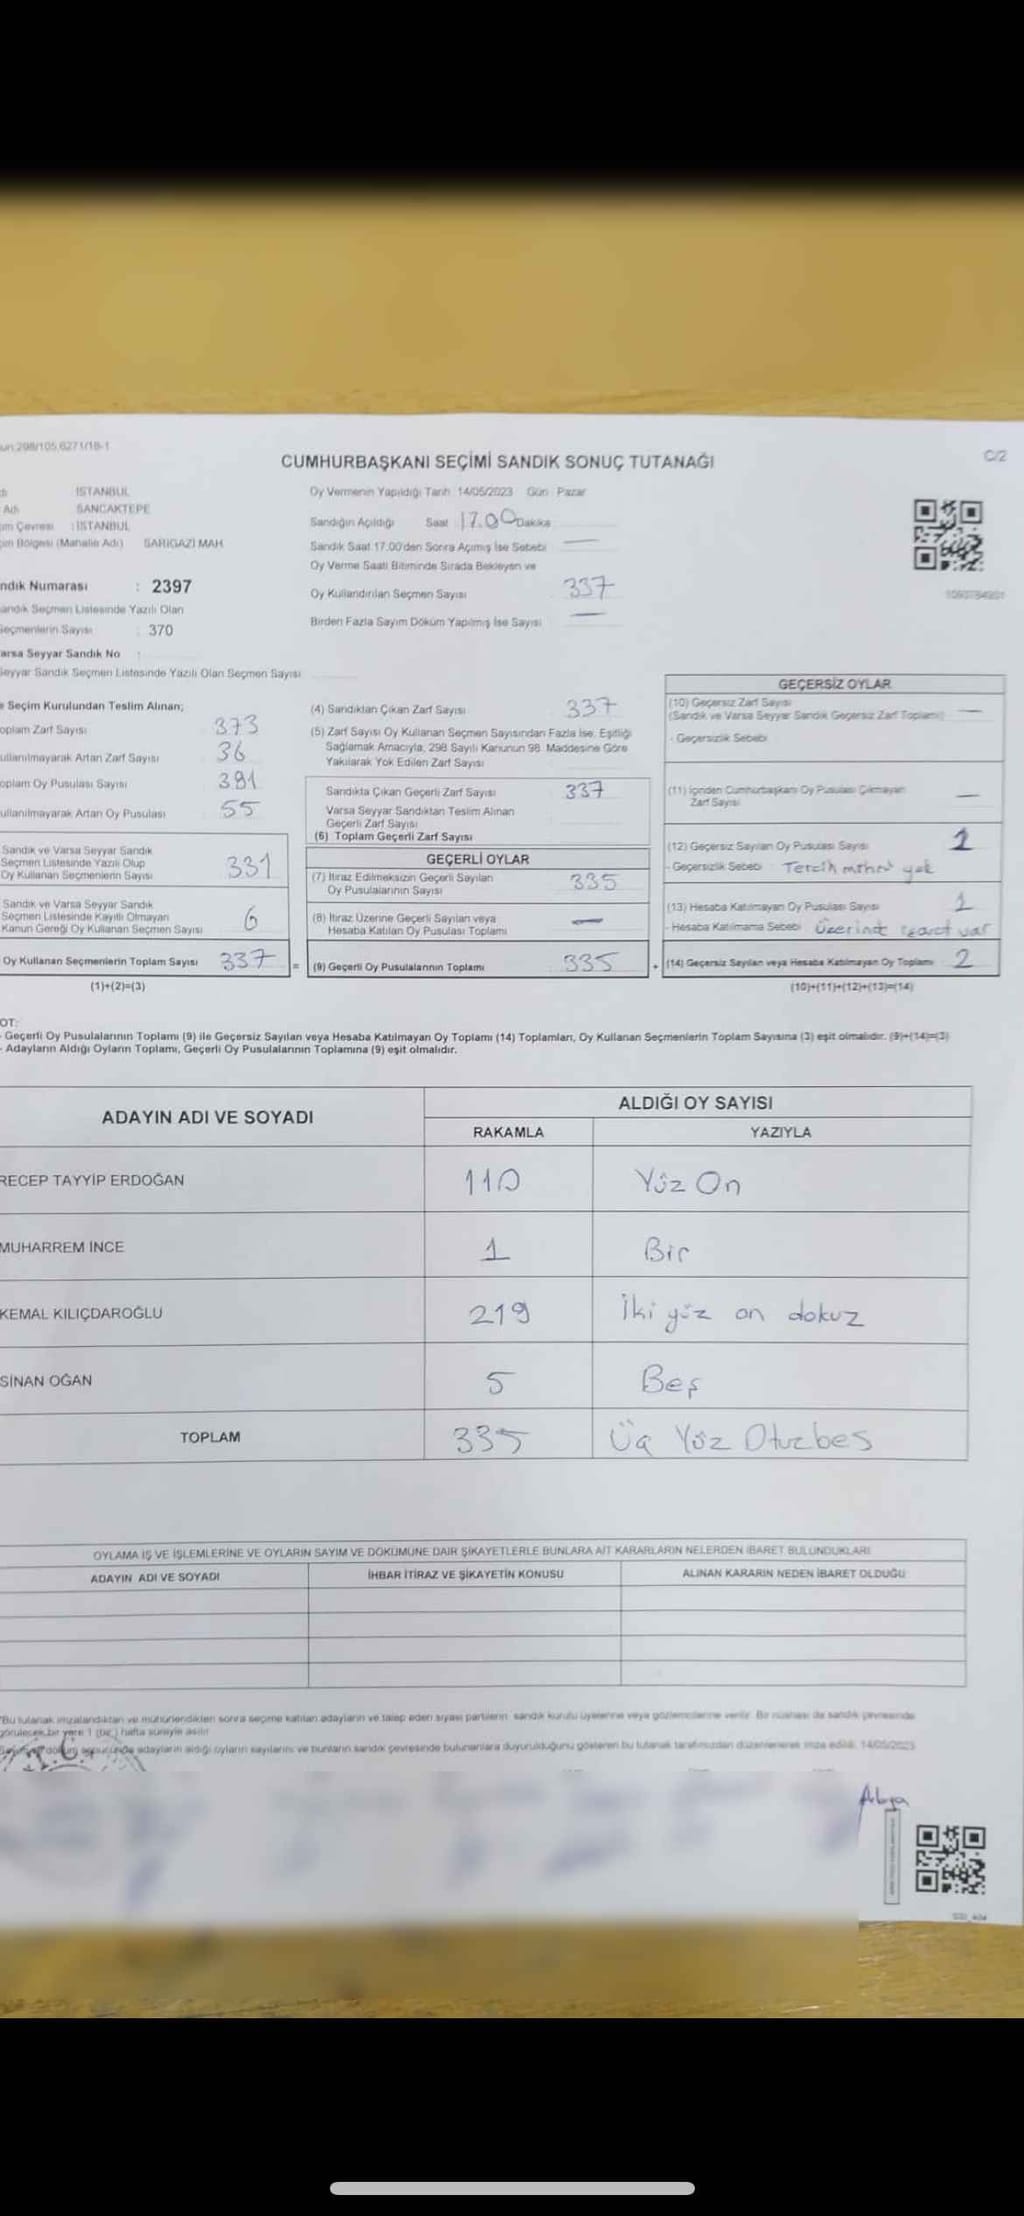 CUMHURBAŞKANI SEÇİMİ SANDIK SONUÇ TUTANAĞI
C/2
İSTANBUL
Adı SANCAKTEPE
im Çevresi : İSTANBUL
im Bölgesi (Mahalle Adı) SARIGAZİ MAH
ndık Numarası : 2397
andık Seçmen Listesinde Yazılı Olan
Seçmenlerin Sayısı : 370
arsa Seyyar Sandık No :
Seyyar Sandık Seçmen Listesinde Yazılı Olan Seçmen Sayısı
Oy Vermenin Yapıldığı Tarih 14/05/2023 Gün Pazar
Sandığın Açıldığı Saat 17.00 Dakika
Sandık Saat 17.00'den Sonra Açımış İse Sebebi —
Oy Verme Saati Bitiminde Sırada Bekleyen ve
Oy Kullandırılan Seçmen Sayısı 337
Birden Fazla Sayım Döküm Yapılmış İse Sayısı —
e Seçim Kurulundan Teslim Alınan;
oplam Zarf Sayısı 373
ullanılmayarak Artan Zarf Sayısı 36
oplam Oy Pusulası Sayısı 391
ullanılmayarak Artan Oy Pusulası 55
Sandık ve Varsa Seyyar Sandık
Seçmen Listesinde Yazılı Olup
Oy Kullanan Seçmenlerin Sayısı 331
Sandık ve Varsa Seyyar Sandık
Seçmen Listesinde Kayıtlı Olmayan
Kanun Gereği Oy Kullanan Seçmen Sayısı 6
Oy Kullanan Seçmenlerin Toplam Sayısı 337 =
(1)+(2)=(3)
(4) Sandıktan Çıkan Zarf Sayısı 337
(5) Zarf Sayısı Oy Kullanan Seçmen Sayısından Fazla İse, Eşitliği
Sağlamak Amacıyla, 298 Sayılı Kanunun 98. Maddesine Göre
Yakılarak Yok Edilen Zarf Sayısı
Sandıkta Çıkan Geçerli Zarf Sayısı 337
Varsa Seyyar Sandıktan Teslim Alınan
Geçerli Zarf Sayısı
(6) Toplam Geçerli Zarf Sayısı
GEÇERLİ OYLAR
(7) İtiraz Edilmeksizin Geçerli Sayılan
Oy Pusulalarının Sayısı 335
(8) İtiraz Üzerine Geçerli Sayılan veya
Hesaba Katılan Oy Pusulası Toplamı —
(9) Geçerli Oy Pusulalarının Toplamı 335 +
GEÇERSİZ OYLAR
(10) Geçersiz Zarf Sayısı —
(Sandık ve Varsa Seyyar Sandık Geçersiz Zarf Toplamı)
- Geçersizlik Sebebi
(11) İçinden Cumhurbaşkanı Oy Pusulası Çıkmayan
Zarf Sayısı —
(12) Geçersiz Sayılan Oy Pusulası Sayısı 1
- Geçersizlik Sebebi Tercih mührü yok
(13) Hesaba Katılmayan Oy Pusulası Sayısı 1
- Hesaba Katılmama Sebebi Üzerinde işaret var
(14) Geçersiz Sayılan veya Hesaba Katılmayan Oy Toplamı 2
(10)+(11)+(12)+(13)=(14)
OT:
- Geçerli Oy Pusulalarının Toplamı (9) ile Geçersiz Sayılan veya Hesaba Katılmayan Oy Toplamı (14) Toplamları, Oy Kullanan Seçmenlerin Toplam Sayısına (3) eşit olmalıdır. (9)+(14)=(3)
- Adayların Aldığı Oyların Toplamı, Geçerli Oy Pusulalarının Toplamına (9) eşit olmalıdır.
ADAYIN ADI VE SOYADI
ALDIĞI OY SAYISI
RAKAMLA YAZIYLA
RECEP TAYYİP ERDOĞAN 110 Yüz On
MUHARREM İNCE 1 Bir
KEMAL KILIÇDAROĞLU 219 İki yüz on dokuz
SİNAN OĞAN 5 Beş
TOPLAM 335 Üç Yüz Otuzbes
OYLAMA İŞ VE İŞLEMLERİNE VE OYLARIN SAYIM VE DÖKÜMÜNE DAİR ŞİKAYETLERLE BUNLARA AİT KARARLARIN NELERDEN İBARET BULUNDUKLARI
ADAYIN ADI VE SOYADI İHBAR İTİRAZ VE ŞİKAYETİN KONUSU ALINAN KARARIN NEDEN İBARET OLDUĞU
*Bu tutanak imzalandıktan ve mühürlendikten sonra seçime katılan adayların ve talep eden siyasi partilerin, sandık kurulu üyelerine veya gözlemcilerine verilir. Bir nüshası da sandık çevresinde
görülecek bir yere 1 (bir) hafta süreyle asılır
adayların aldığı oyların sayılarını ve bunların sandık çevresinde bulunanlara duyurulduğunu gösteren bu tutanak tarafımızdan düzenlenerek imza edildi. 14/05/2023
T.C.